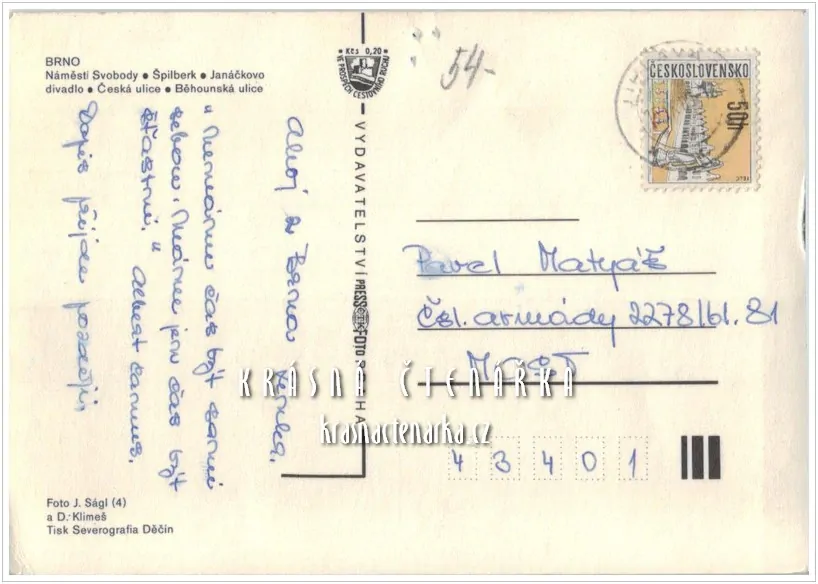 BRNO
Náměstí Svobody ● Špilberk ● Janáčkovo
divadlo ● Česká ulice ● Běhounská ulice
Kčs 0,20
VE PROSPĚCH CESTOVNÍHO RUCHU
54-
ČESKOSLOVENSKO
50h
Ahoj z Brna
"Nemáme čas být sami
sebou. Máme jen čas být
šťastni."
Albert Camus.
Dopis přijde později.
VYDAVATELSTVÍ PRESSFOTO PRAHA
Pavel Matyáš
Čsl. armády 2278/bl. 81
MOST
43401
KRÁSNÁ ČTENÁŘKA
krasnactenarka.cz
Foto J. Ságl (4)
a D. Klimeš
Tisk Severografia Děčín